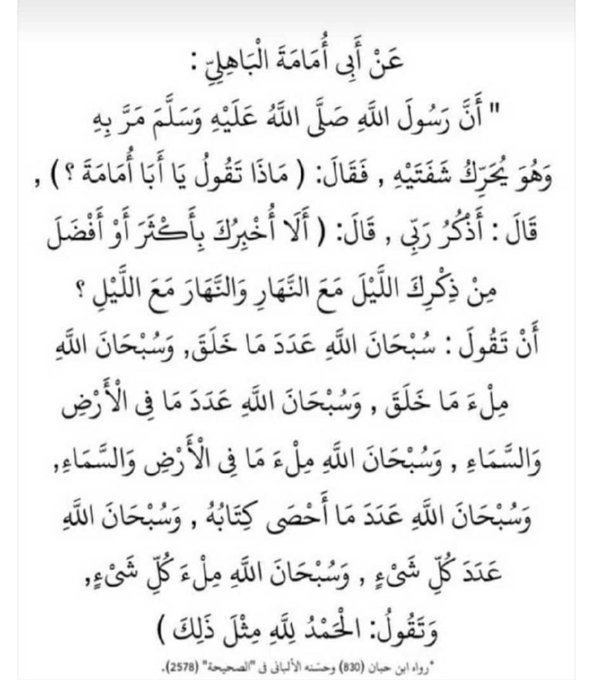 عَنْ أَبِى أُمَامَةَ الْبَاهِلِيِّ :
" أَنَّ رَسُولَ اللَّهِ صَلَّى اللَّهُ عَلَيْهِ وَسَلَّمَ مَرَّ بِهِ
وَهُوَ يُحَرِّكُ شَفَتَيْهِ , فَقَالَ: ( مَاذَا تَقُولُ يَا أَبَا أُمَامَةَ ؟ ) ,
قَالَ : أَذْكُرُ رَبِّى , قَالَ: ( أَلَا أُخْبِرُكَ بِأَكْثَرَ أَوْ أَفْضَلَ
مِنْ ذِكْرِكَ اللَّيْلَ مَعَ النَّهَارِ وَالنَّهَارَ مَعَ اللَّيْلِ ؟
أَنْ تَقُولَ : سُبْحَانَ اللَّهِ عَدَدَ مَا خَلَقَ, وَسُبْحَانَ اللَّهِ
مِلْءَ مَا خَلَقَ , وَسُبْحَانَ اللَّهِ عَدَدَ مَا فِى الْأَرْضِ
وَالسَّمَاءِ , وَسُبْحَانَ اللَّهِ مِلْءَ مَا فِى الْأَرْضِ وَالسَّمَاءِ,
وَسُبْحَانَ اللَّهِ عَدَدَ مَا أَحْصَى كِتَابُهُ , وَسُبْحَانَ اللَّهِ
عَدَدَ كُلِّ شَىْءٍ , وَسُبْحَانَ اللَّهِ مِلْءَ كُلِّ شَىْءٍ,
وَتَقُولُ: الْحَمْدُ لِلَّهِ مِثْلَ ذَلِكَ )
"رواه ابن حبان (830) وحسّنه الألبانى فى "الصحيحة" (2578).